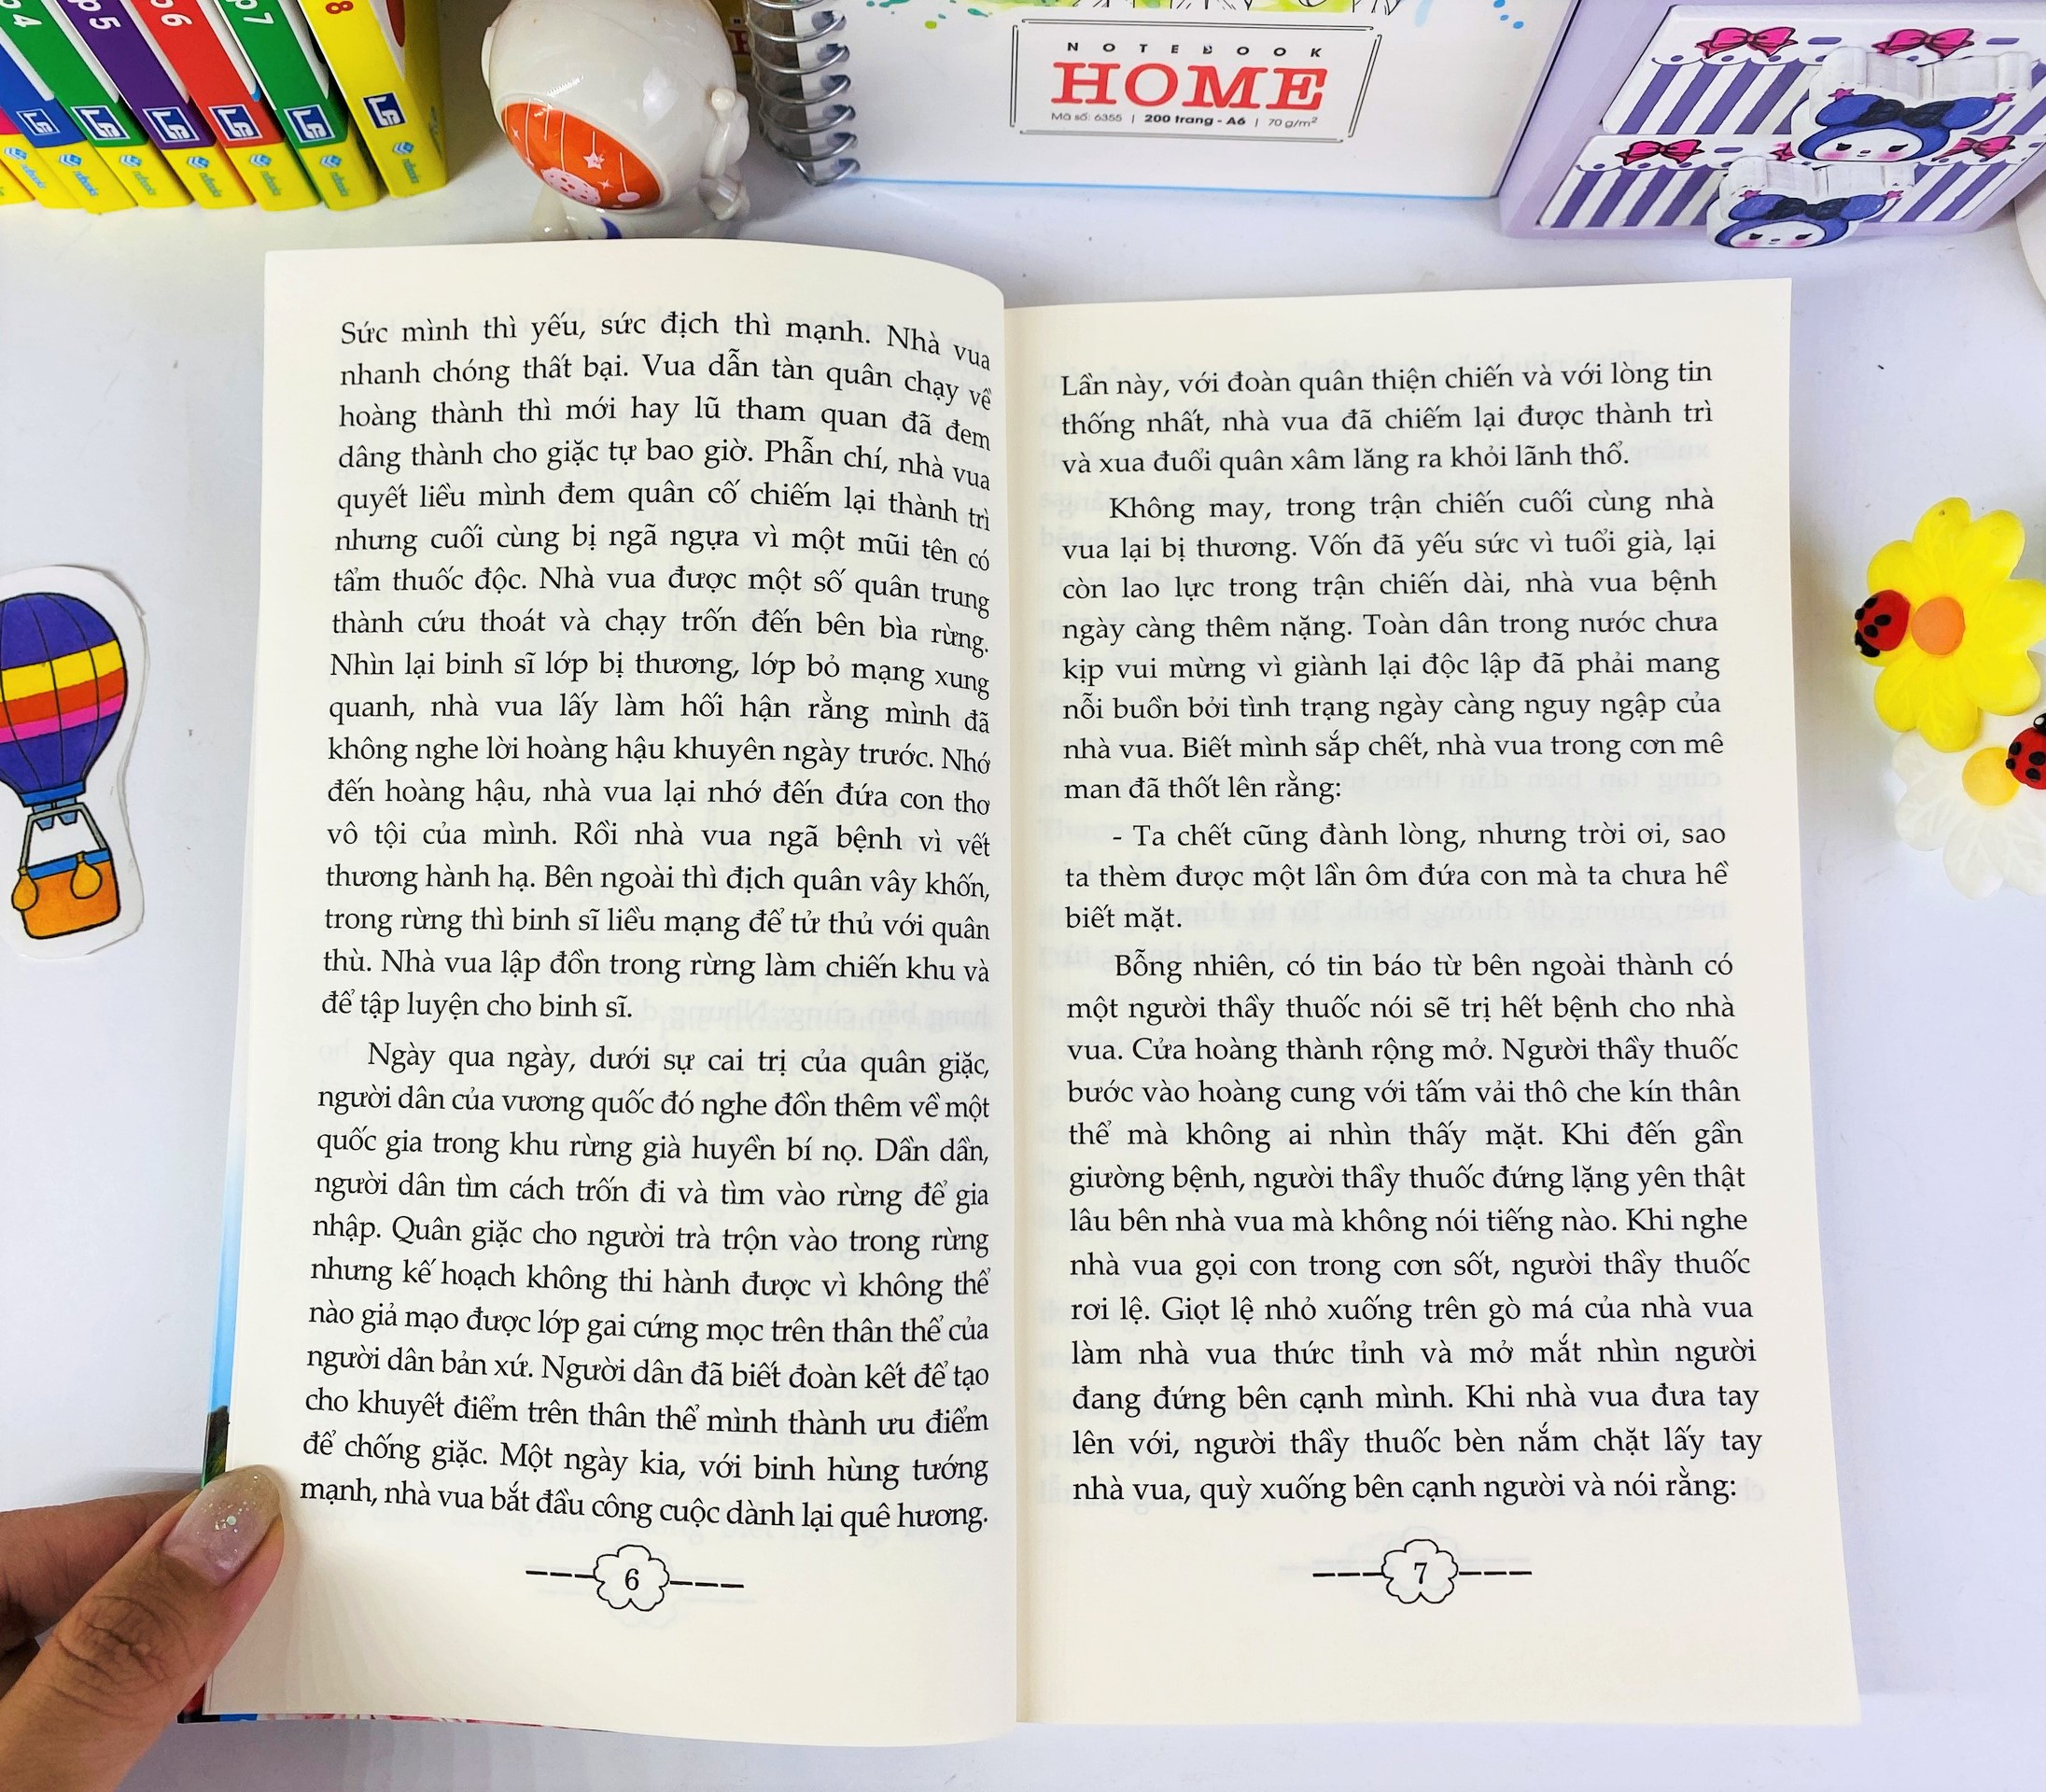 4
5
6
7
8
NOTEBOOK
HOME
Mã số: 6355 | 200 trang - A6 | 70 g/m²
Sức mình thì yếu, sức địch thì mạnh. Nhà vua
nhanh chóng thất bại. Vua dẫn tàn quân chạy về
hoàng thành thì mới hay lũ tham quan đã đem
dâng thành cho giặc tự bao giờ. Phẫn chí, nhà vua
quyết liều mình đem quân cố chiếm lại thành trì
nhưng cuối cùng bị ngã ngựa vì một mũi tên có
tẩm thuốc độc. Nhà vua được một số quân trung
thành cứu thoát và chạy trốn đến bên bìa rừng.
Nhìn lại binh sĩ lớp bị thương, lớp bỏ mạng xung
quanh, nhà vua lấy làm hối hận rằng mình đã
không nghe lời hoàng hậu khuyên ngày trước. Nhớ
đến hoàng hậu, nhà vua lại nhớ đến đứa con thơ
vô tội của mình. Rồi nhà vua ngã bệnh vì vết
thương hành hạ. Bên ngoài thì địch quân vây khốn,
trong rừng thì binh sĩ liều mạng để tử thủ với quân
thù. Nhà vua lập đồn trong rừng làm chiến khu và
để tập luyện cho binh sĩ.
Ngày qua ngày, dưới sự cai trị của quân giặc,
người dân của vương quốc đó nghe đồn thêm về một
quốc gia trong khu rừng già huyền bí nọ. Dần dần,
người dân tìm cách trốn đi và tìm vào rừng để gia
nhập. Quân giặc cho người trà trộn vào trong rừng
nhưng kế hoạch không thi hành được vì không thể
nào giả mạo được lớp gai cứng mọc trên thân thể của
người dân bản xứ. Người dân đã biết đoàn kết để tạo
cho khuyết điểm trên thân thể mình thành ưu điểm
để chống giặc. Một ngày kia, với binh hùng tướng
mạnh, nhà vua bắt đầu công cuộc dành lại quê hương.
6
Lần này, với đoàn quân thiện chiến và với lòng tin
thống nhất, nhà vua đã chiếm lại được thành trì
và xua đuổi quân xâm lăng ra khỏi lãnh thổ.
Không may, trong trận chiến cuối cùng nhà
vua lại bị thương. Vốn đã yếu sức vì tuổi già, lại
còn lao lực trong trận chiến dài, nhà vua bệnh
ngày càng thêm nặng. Toàn dân trong nước chưa
kịp vui mừng vì giành lại độc lập đã phải mang
nỗi buồn bởi tình trạng ngày càng nguy ngập của
nhà vua. Biết mình sắp chết, nhà vua trong cơn mê
man đã thốt lên rằng:
- Ta chết cũng đành lòng, nhưng trời ơi, sao
ta thèm được một lần ôm đứa con mà ta chưa hề
biết mặt.
Bỗng nhiên, có tin báo từ bên ngoài thành có
một người thầy thuốc nói sẽ trị hết bệnh cho nhà
vua. Cửa hoàng thành rộng mở. Người thầy thuốc
bước vào hoàng cung với tấm vải thô che kín thân
thể mà không ai nhìn thấy mặt. Khi đến gần
giường bệnh, người thầy thuốc đứng lặng yên thật
lâu bên nhà vua mà không nói tiếng nào. Khi nghe
nhà vua gọi con trong cơn sốt, người thầy thuốc
rơi lệ. Giọt lệ nhỏ xuống trên gò má của nhà vua
làm nhà vua thức tỉnh và mở mắt nhìn người
đang đứng bên cạnh mình. Khi nhà vua đưa tay
lên với, người thầy thuốc bèn nắm chặt lấy tay
nhà vua, quỳ xuống bên cạnh người và nói rằng:
7